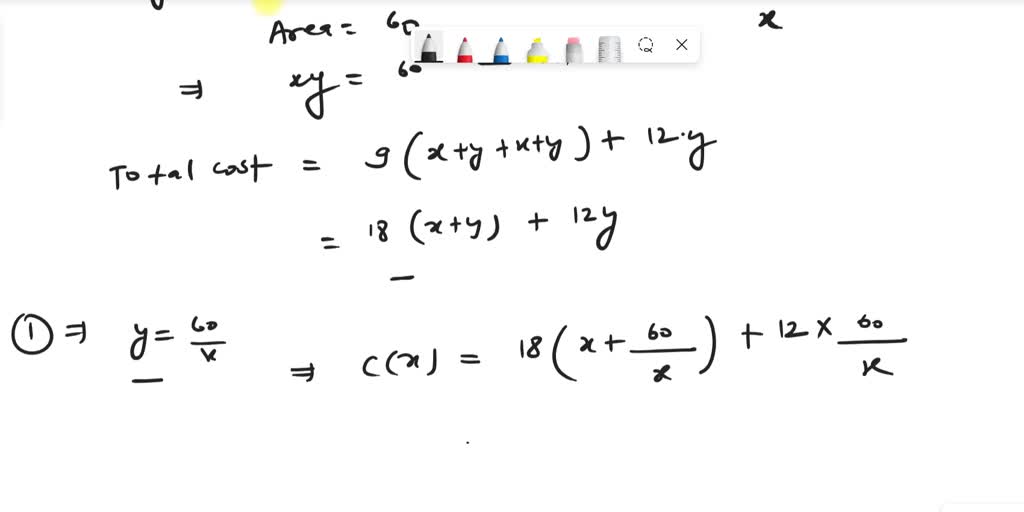 Area = 60
x
⇒ xy = 60
Total cost = 9 (x+y+x+y) + 12·y
= 18 (x+y) + 12y
① ⇒ y = 60/x ⇒ C(x) = 18 (x + 60/x) + 12 × 60/x